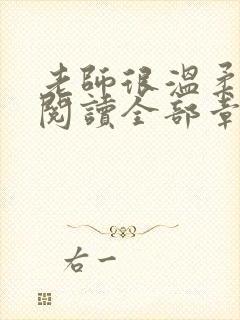 老師很溫柔
閱讀全部章
右一